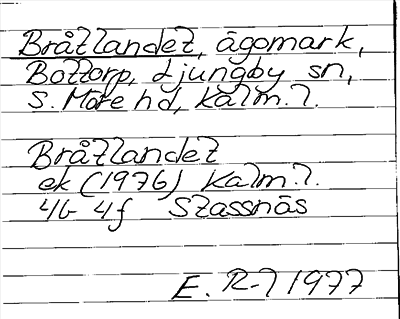 Bråtlandet, ägomark,
Bottorp, Ljungby sn,
S. Möre hd, Kalm. l.
Bråtlandet
ek (1976) Kalm. l.
4G 4f Stassnäs
E. R-l 1977